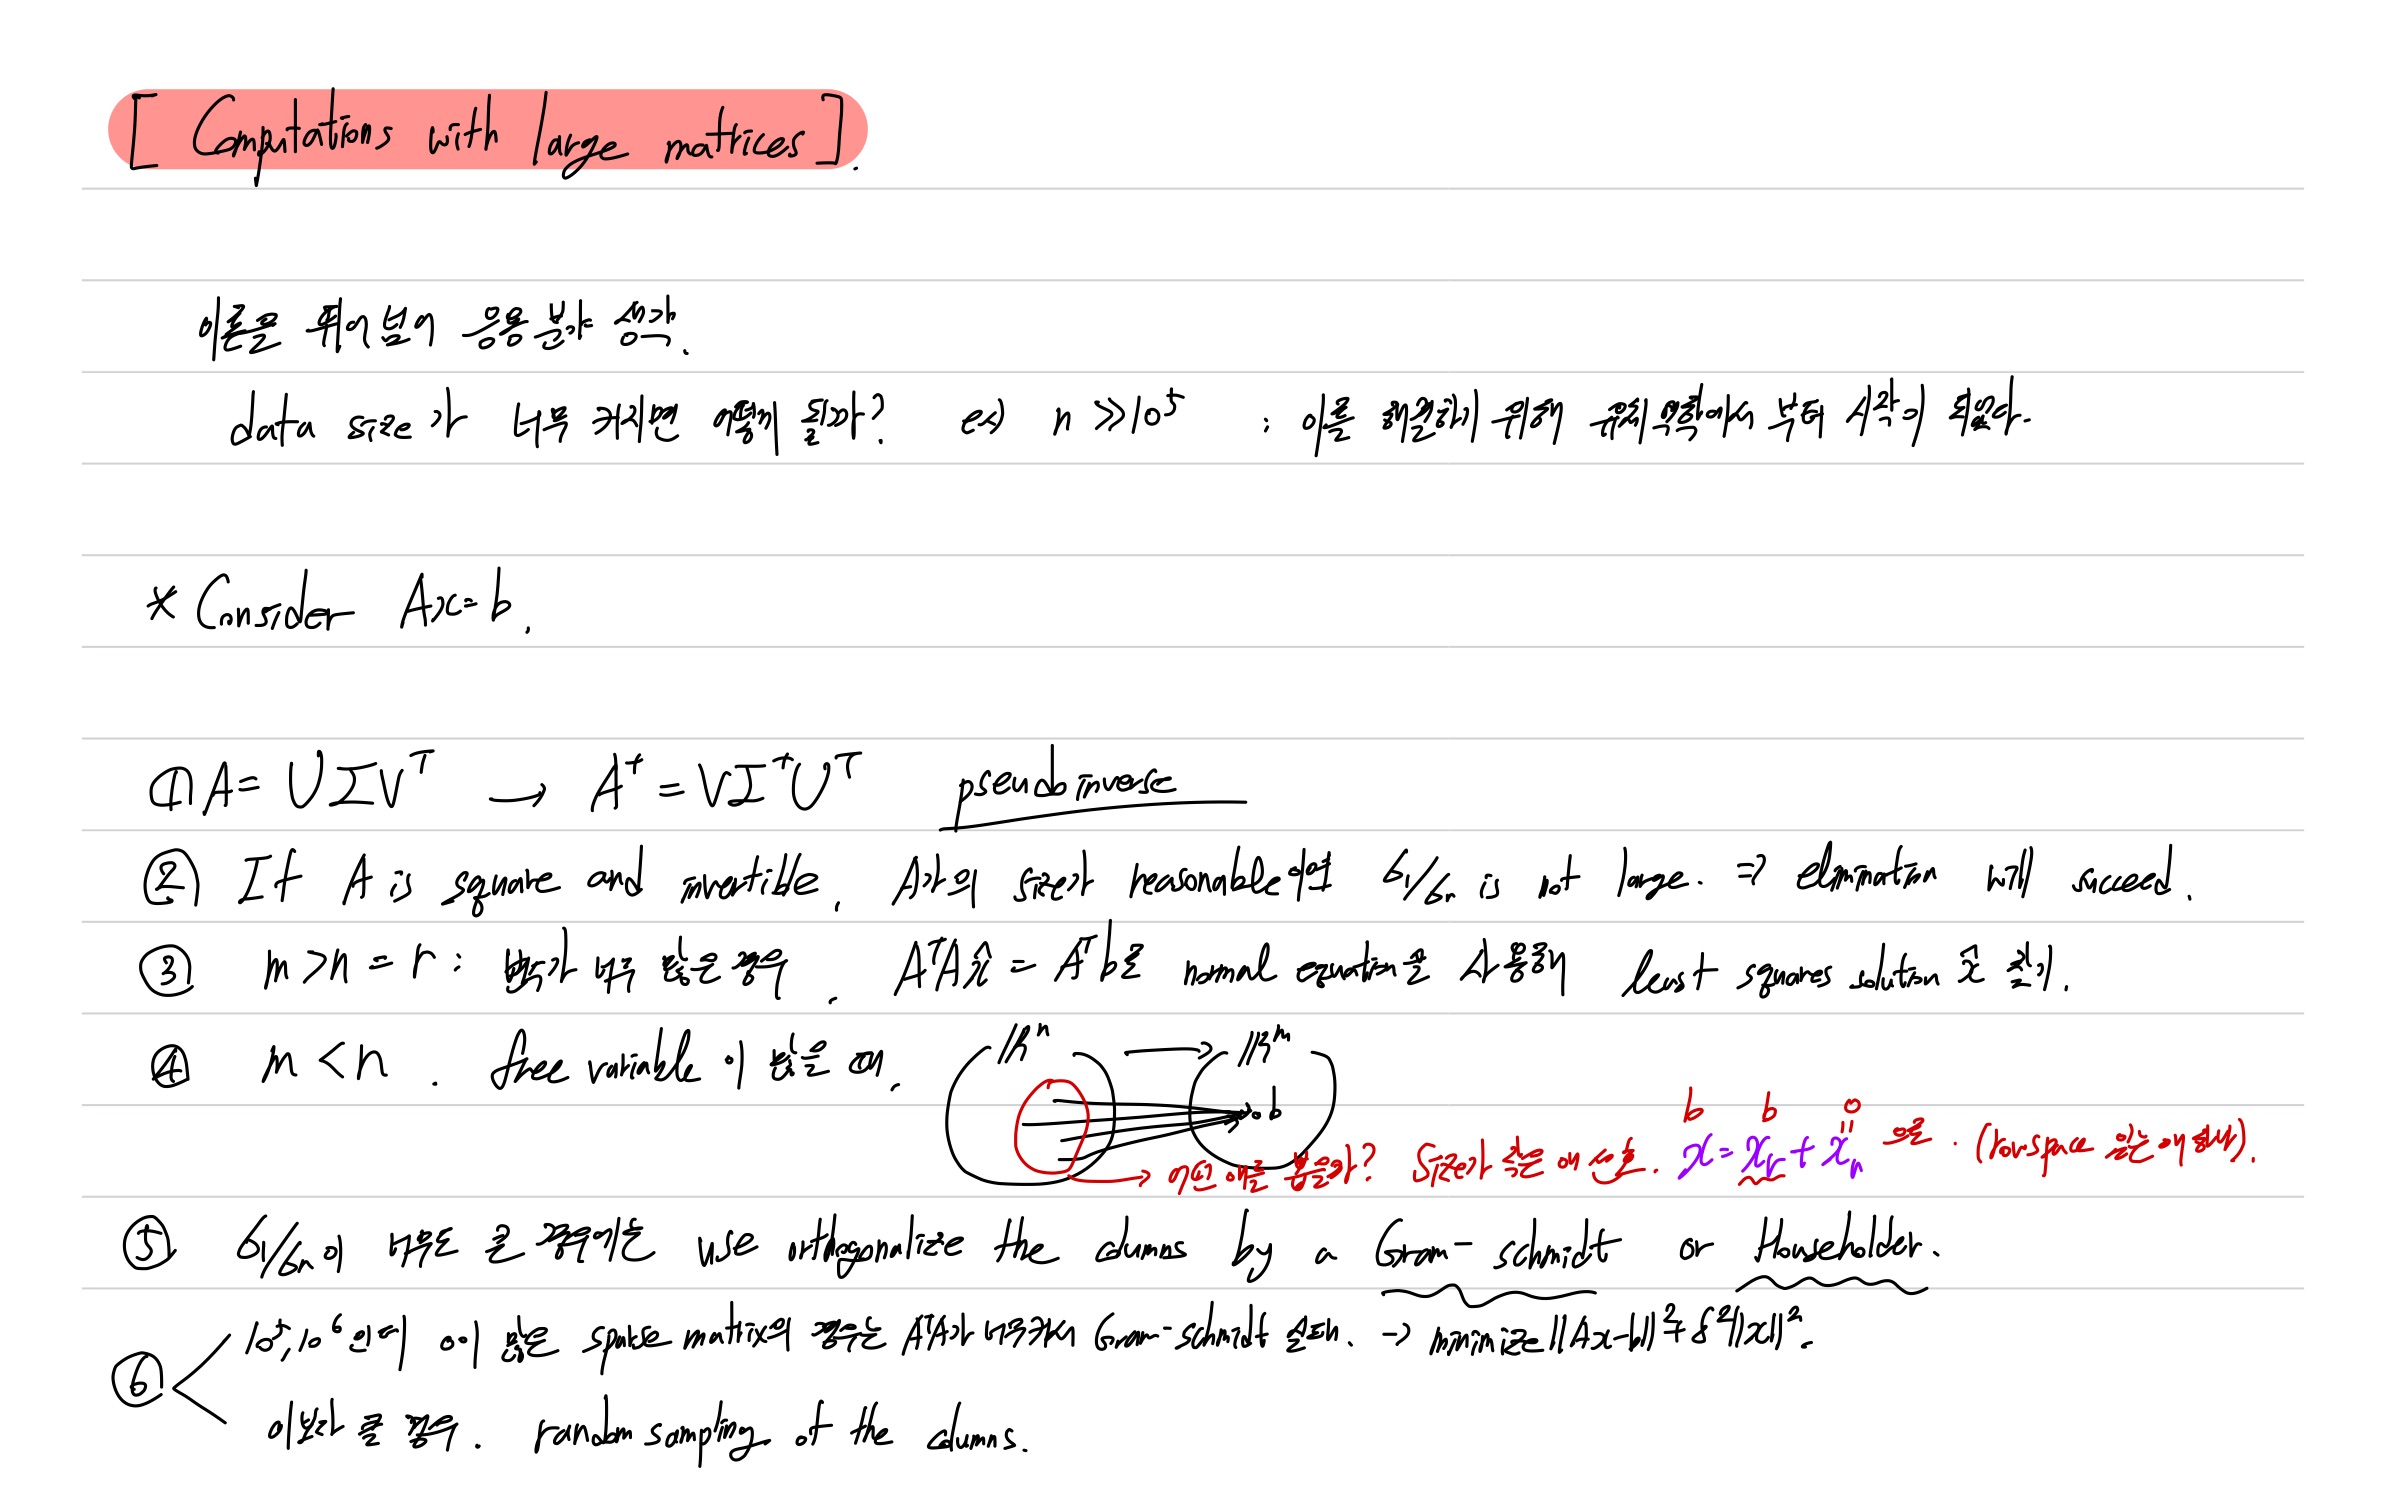 [ Computations with large matrices ].
이론을 뛰어넘어 응용 분야 생각.
data size가 너무 커지면 어떻게 될까? ex) n ≫ 10⁵ : 이를 해결하기 위해 유체역학에서 부터 시작이 되었다.
* Consider Ax=b.
① A = UΣVᵀ → A⁺ = VΣ⁺Uᵀ pseudoinverse
② If A is square and invertible, A의 size가 reasonable이며 σ₁/σₙ is not large. ⇒ elimination will succeed.
③ m > n = r : 변수가 너무 많은 경우, AᵀAx̂ = Aᵀb로 normal equation을 사용해 least squares solution x̂ 찾기.
④ m < n . free variable이 많을 때, ℝⁿ → ℝᵐ
b
b b 0
어떤 애를 뽑을까? Size가 작은 애 선호. x = xᵣ + xₙ 으로 . (row space 있는 애 하나).
⑤ σ₁/σₙ이 너무도 클 경우에는 use orthogonalize the columns by a Gram-schmidt or Householder.
⑥ 10⁵, 10⁶인데 0이 많은 sparse matrix의 경우는 AᵀA가 너무커서 Gram-schmidt 실패. → minimize ||Ax-b||² + δ²||x||².
이보다 클 경우. random sampling of the columns.